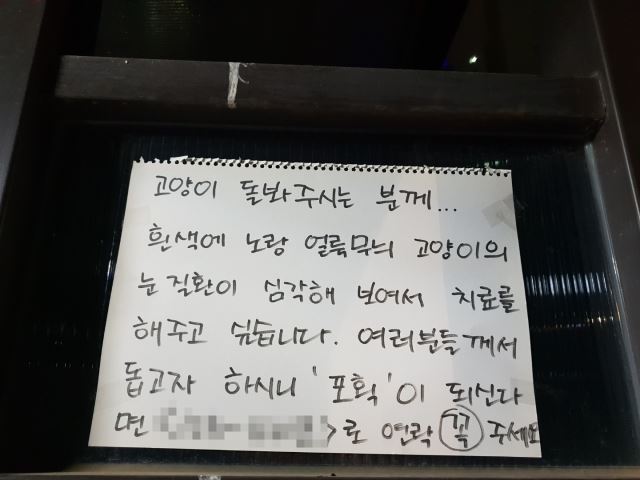 고양이 돌봐주시는 분께...
흰색에 노랑 얼룩무늬 고양이의
눈질환이 심각해 보여서 치료를
해주고 싶습니다. 여러분들께서
돕고자 하시니 '포획'이 되신다
면 < >로 연락 꼭 주세요